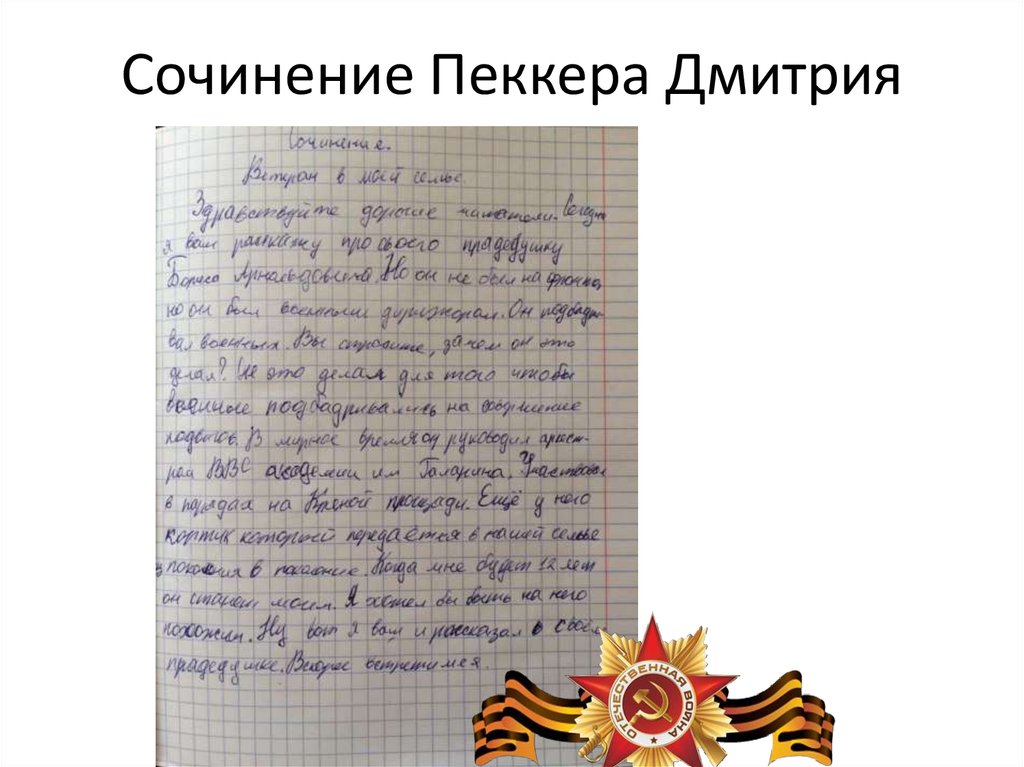 Сочинение Пеккера Дмитрия
Сочинение.
Ветеран в моей семье.
Здравствуйте дорогие читатели. Сегодня
я вам расскажу про своего прадедушку
Бориса Арнольдовича. Но он не был на фронте,
но он был военным дирижором. Он подбадри-
вал военных. Вы спросите, зачем он это
делал? Не это делал для того чтобы
военные подбадривались на совершение
подвигов. В мирное время он руководил оркест-
ром ВВС академии им Гагарина. Участвовал
в парадах на Красной площади. Ещё у него
кортик который передаётся в нашей семье
з поколния в поколение. Когда мне будет 12 лет
он станет моим. Я хотел бы быть на него
похожим. Ну вот я вам и рассказал о своём
прадедушке. Вскоре встретимся.
ОТЕЧЕСТВЕННАЯ ВОЙНА